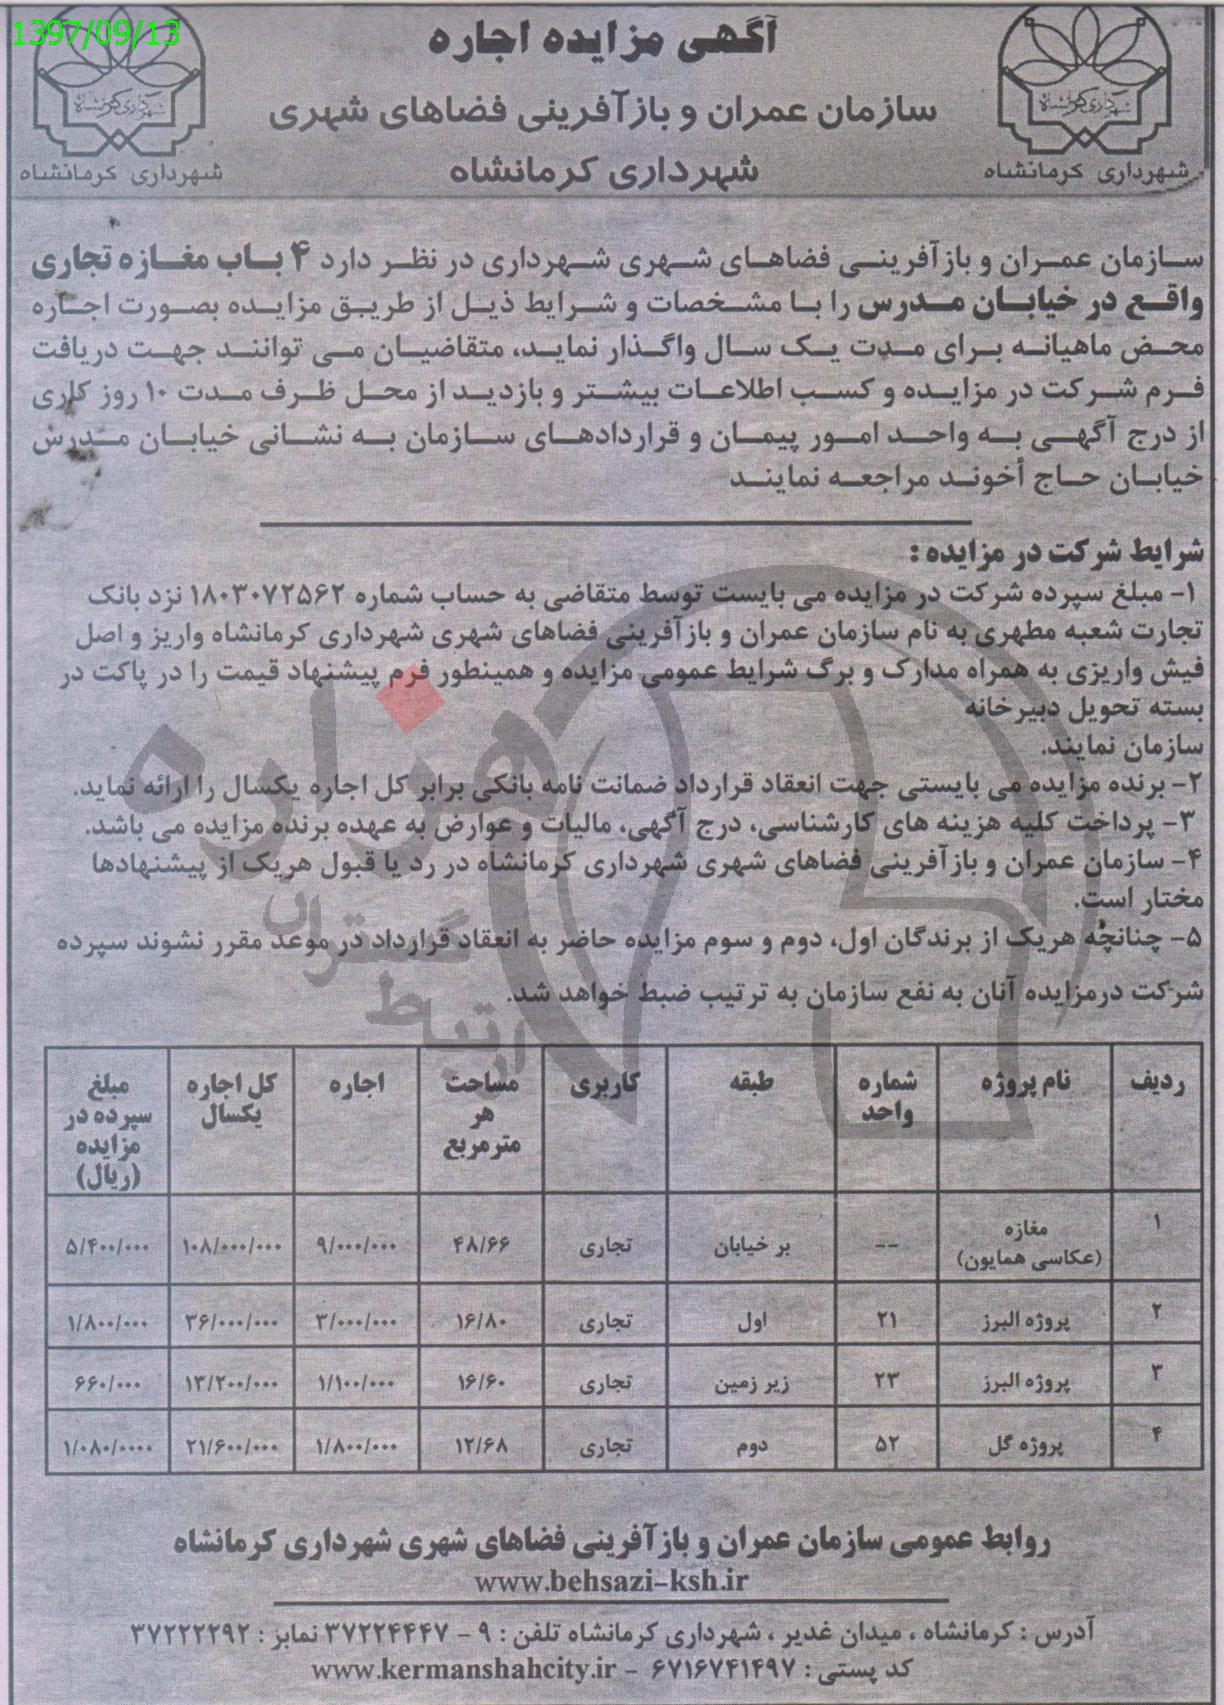 1397/09/13
آگهی مزایده اجاره
سازمان عمران و بازآفرینی فضاهای شهری
شهرداری کرمانشاه
شهرداری کرمانشاه
شهرداری کرمانشاه
سازمان عمران و بازآفرینی فضاهای شهری شهرداری در نظر دارد ۴ باب مغازه تجاری
واقع در خیابان مدرس را با مشخصات و شرایط ذیل از طریق مزایده بصورت اجاره
محض ماهیانه برای مدت یک سال واگذار نماید، متقاضیان می توانند جهت دریافت
فرم شرکت در مزایده و کسب اطلاعات بیشتر و بازدید از محل ظرف مدت ۱۰ روز کاری
از درج آگهی به واحد امور پیمان و قراردادهای سازمان به نشانی خیابان مدرس
خیابان حاج آخوند مراجعه نمایند
شرایط شرکت در مزایده :
۱- مبلغ سپرده شرکت در مزایده می بایست توسط متقاضی به حساب شماره ۱۸۰۳۰۷۲۵۶۲ نزد بانک
تجارت شعبه مطهری به نام سازمان عمران و بازآفرینی فضاهای شهری شهرداری کرمانشاه واریز و اصل
فیش واریزی به همراه مدارک و برگ شرایط عمومی مزایده و همینطور فرم پیشنهاد قیمت را در پاکت در
بسته تحویل دبیرخانه
سازمان نمایند.
۲- برنده مزایده می بایستی جهت انعقاد قرارداد ضمانت نامه بانکی برابر کل اجاره یکسال را ارائه نماید.
۳- پرداخت کلیه هزینه های کارشناسی، درج آگهی، مالیات و عوارض به عهده برنده مزایده می باشد.
۴- سازمان عمران و بازآفرینی فضاهای شهری شهرداری کرمانشاه در رد یا قبول هریک از پیشنهادها
مختار است.
۵- چنانچه هریک از برندگان اول، دوم و سوم مزایده حاضر به انعقاد قرارداد در موعد مقرر نشوند سپرده
شرکت درمزایده آنان به نفع سازمان به ترتیب ضبط خواهد شد.
هزاره
ارتباط گستران
ردیف نام پروژه شماره واحد طبقه کاربری مساحت هر مترمربع اجاره کل اجاره یکسال مبلغ سپرده در مزایده (ریال)
۱ مغازه (عکاسی همایون) -- بر خیابان تجاری ۴۸/۶۶ ۹/۰۰۰/۰۰۰ ۱۰۸/۰۰۰/۰۰۰ ۵/۴۰۰/۰۰۰
۲ پروژه البرز ۲۱ اول تجاری ۱۶/۸۰ ۳/۰۰۰/۰۰۰ ۳۶/۰۰۰/۰۰۰ ۱/۸۰۰/۰۰۰
۳ پروژه البرز ۲۳ زیر زمین تجاری ۱۶/۶۰ ۱/۱۰۰/۰۰۰ ۱۳/۲۰۰/۰۰۰ ۶۶۰/۰۰۰
۴ پروژه گل ۵۲ دوم تجاری ۱۲/۶۸ ۱/۸۰۰/۰۰۰ ۲۱/۶۰۰/۰۰۰ ۱/۰۸۰/۰۰۰۰
روابط عمومی سازمان عمران و بازآفرینی فضاهای شهری شهرداری کرمانشاه
www.behsazi-ksh.ir
آدرس : کرمانشاه ، میدان غدیر ، شهرداری کرمانشاه تلفن : ۹ - ۳۷۲۲۴۴۴۷ نمابر : ۳۷۲۲۲۲۹۲
کد پستی : ۶۷۱۶۷۴۱۴۹۷ - www.kermanshahcity.ir